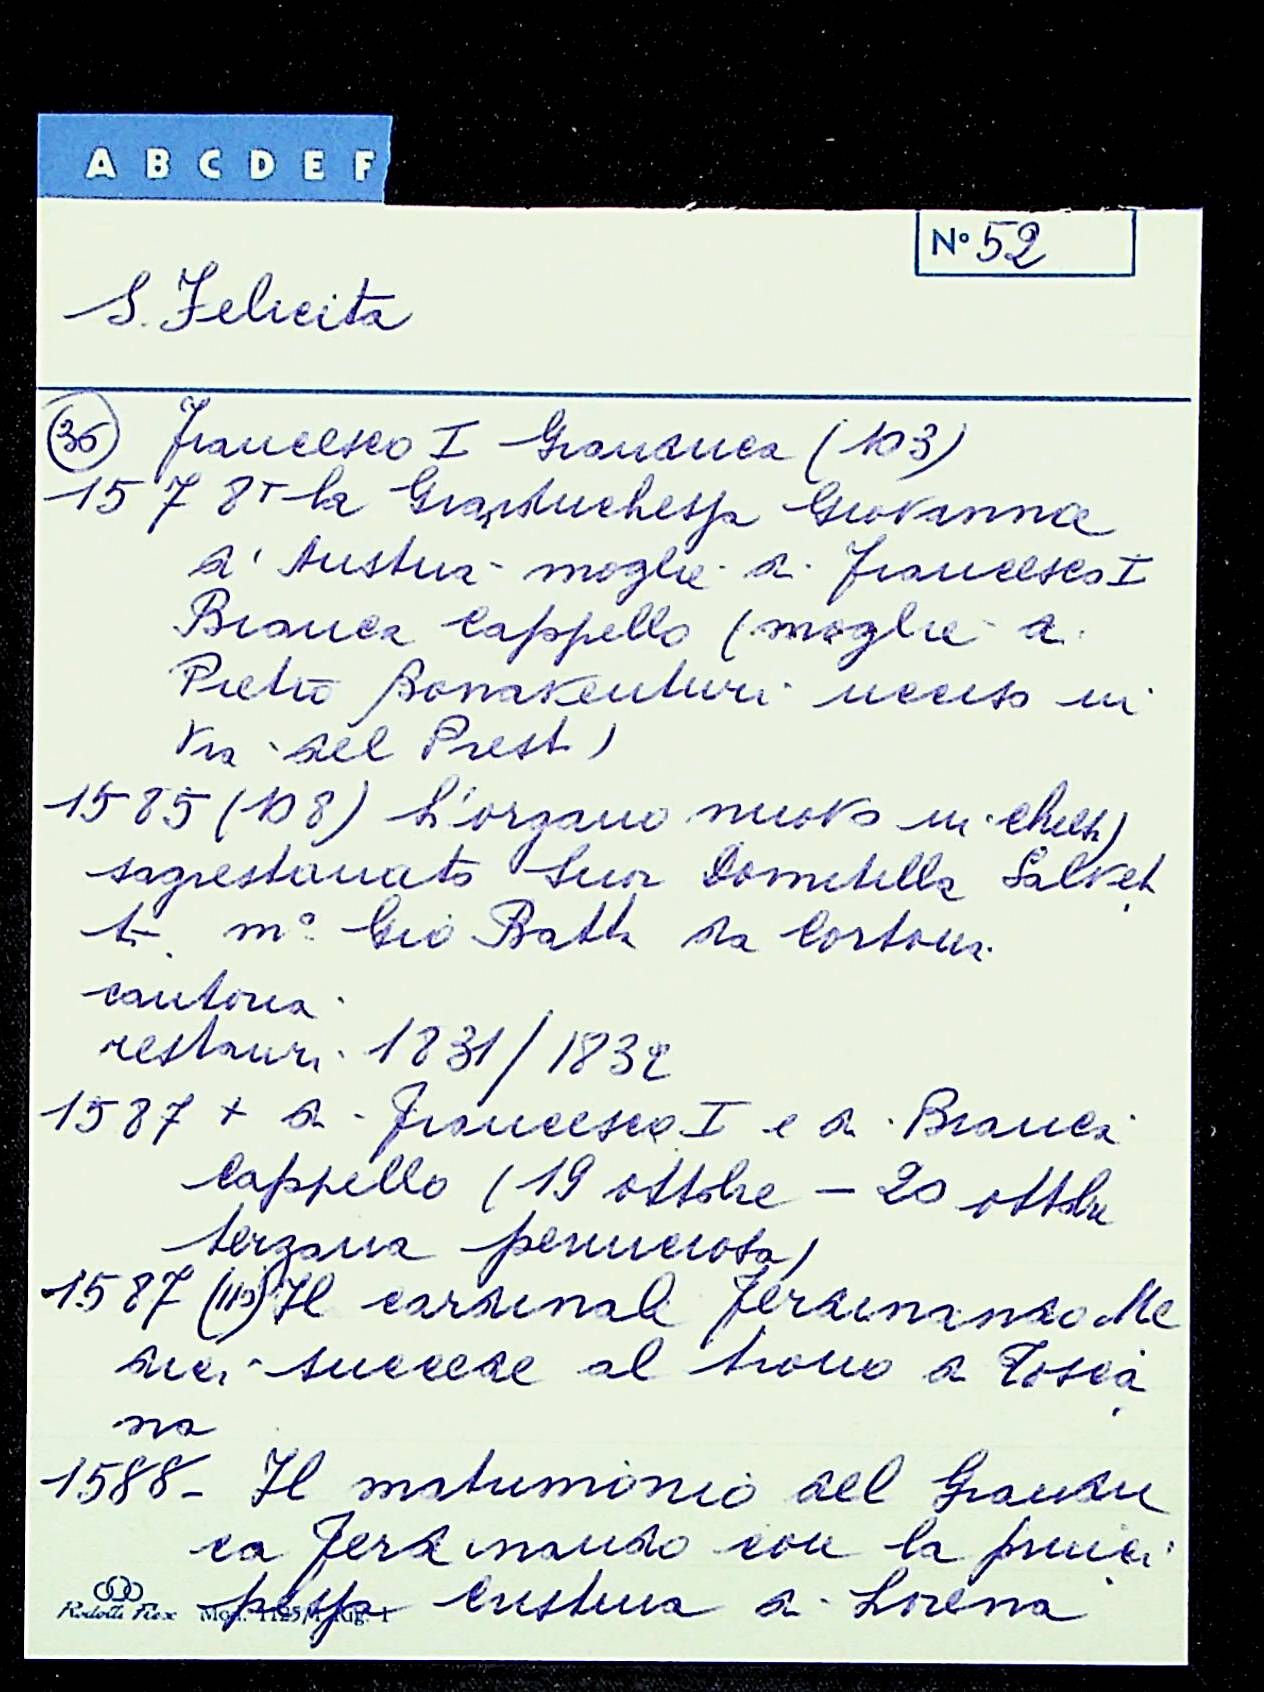 A B C D E F
N° 52
S. Felicita
36 Francesco I Granduca (103)
1578 + la Granduchessa Giovanna
d'Austria moglie di Francesco I
Bianca Cappello (moglie di
Pietro Bonaventuri ucciso in
Via del Presto)
1585 (108) L'organo nuovo in chiesa)
sagrestanato Suor Domitilla Salvet
ti m° Gio Batta da Cortona
cantoria
restauri 1831/1832
1587 + di Francesco I e di Bianca
Cappello (19 ottobre – 20 ottobre
terzana perniciosa)
1587 (110) Il cardinale Ferdinando Me
dici succede al trono di Tosca
na
1588 – Il matrimonio del Grandu
ca Ferdinando con la princi
pessa Cristina di Lorena
Rodolfi Flex Mod. 1125/